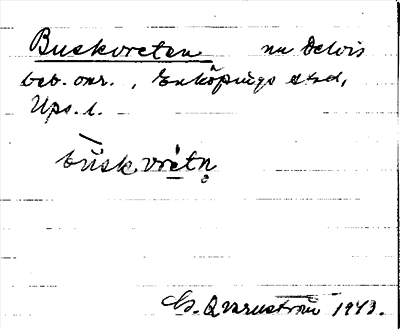 Buskvretan nu delvis
beb. omr., Enköpings stad,
Ups. l.
bùskvrètn̥
G. Qvarnström 1943.